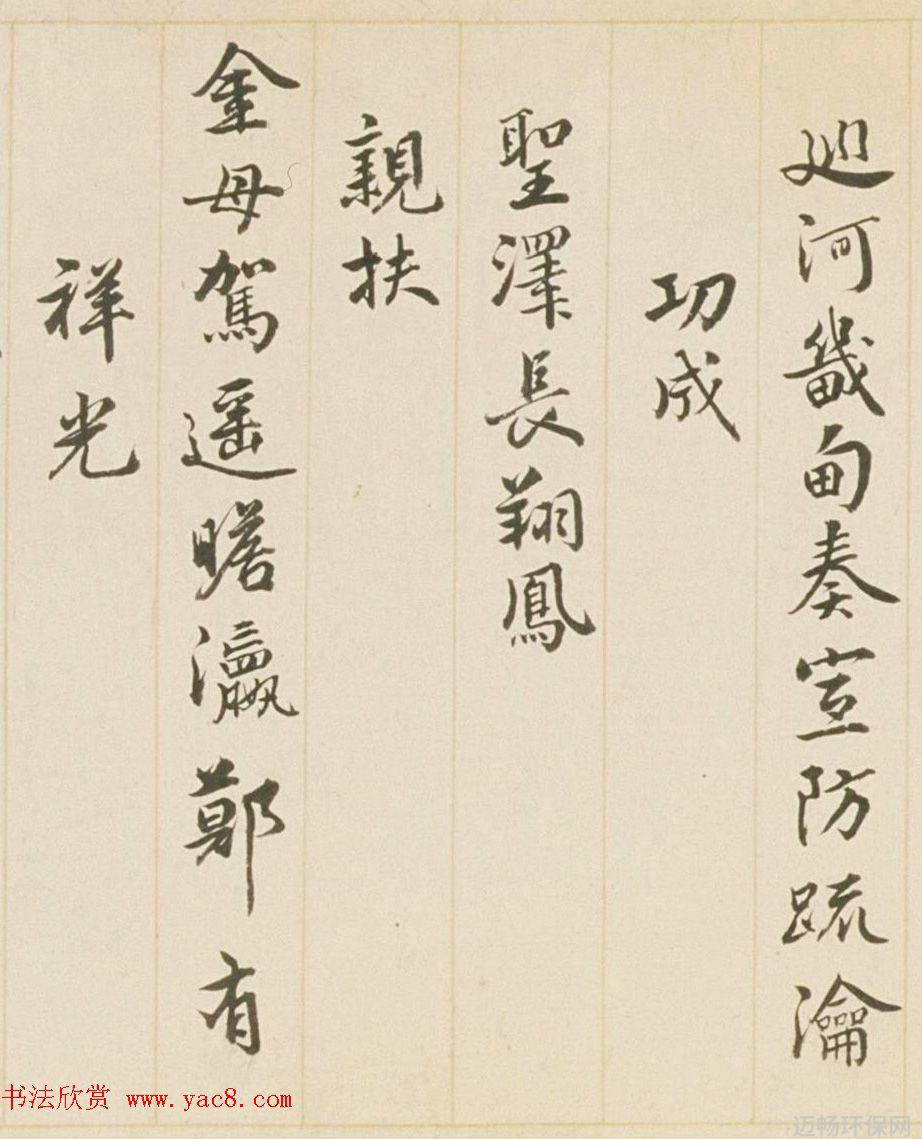 巡河畿甸奏宣防疏瀹
功成
聖澤長翔鳳
親扶
金母駕遥瞻瀛鄭有
祥光
书法欣赏 www.yac8.com
迈畅环保网